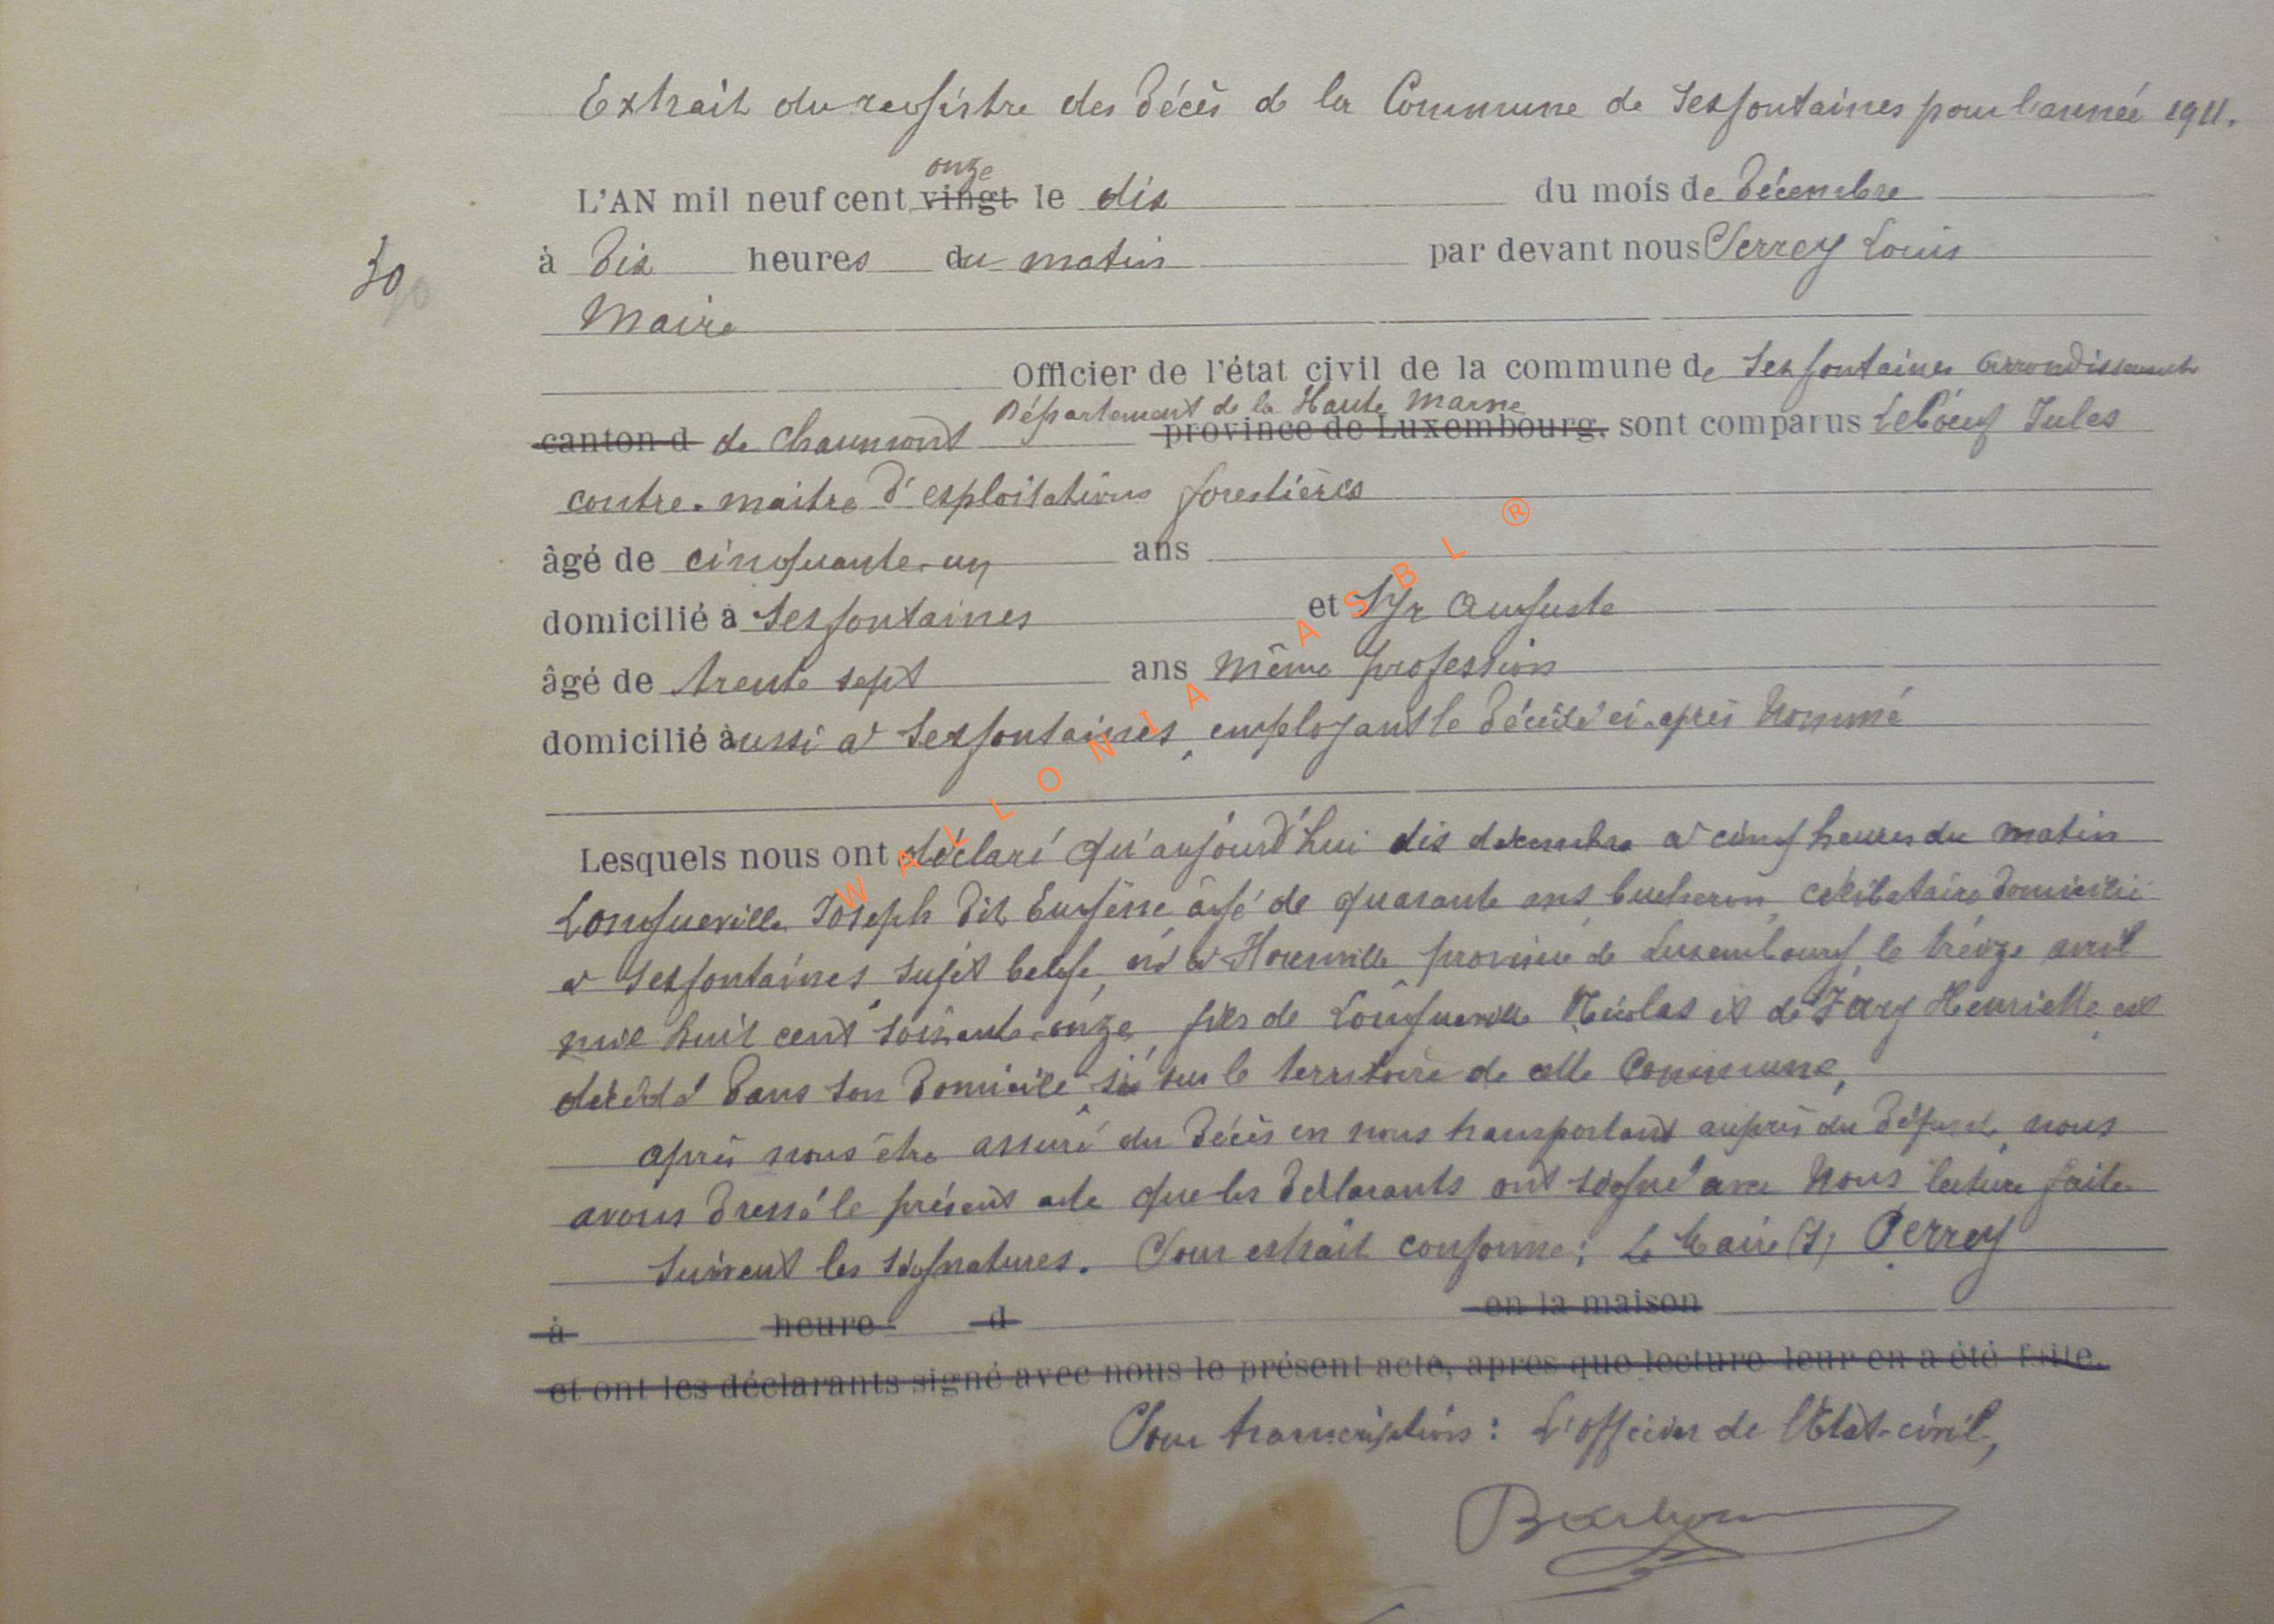 Extrait du registre des Décès de la Commune de Sexfontaines pour l'année 1911.
onze
L'AN mil neuf cent vingt le dix du mois de Décembre
30
à Dix heures du matin par devant nous Perrey Louis
Maire
Officier de l'état civil de la commune de Sexfontaines arrondissement
Département de la Haute Marne
canton d de Chaumont province de Luxembourg. sont comparus Lebœuf Jules
contre-maitre d'exploitations forestières
âgé de cinquante-un ans
domicilié à Sexfontaines et Auguste
âgé de trente sept ans même profession
domicilié aussi à Sexfontaines, employant le Décédé ci-après Nommé
Lesquels nous ont déclaré qu'aujourd'hui dix décembre à cinq heures du matin
Longueville Joseph dit Eugène âgé de quarante ans bucheron, célibataire domicilié
à Sexfontaines, sujet belge, né à province de Luxembourg le treize avril
mil huit cent soixante-onze, fils de Longueville Nicolas et de Henriette est
décédé dans son domicile sis sur le territoire de cette Commune,
après nous être assuré du Décès en nous transportant auprès du Défunt, nous
avons Dressé le présent acte que les Déclarants ont signé avec Nous lecture faite
suivent les signatures. Pour extrait conforme; Le Maire (s) Perrey
à heure d en la maison
et ont les déclarants signé avec nous le présent acte, apres que lecture leur en a été faite.
Pour transcription : L'officier de l'Etat-civil,
WALLONIA ASBL ®